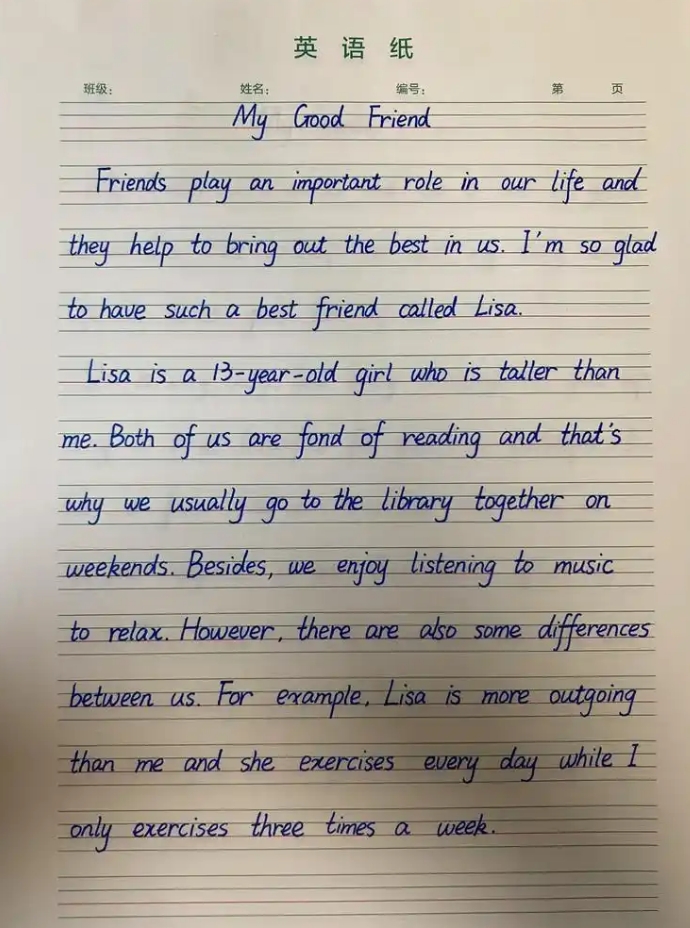 英语纸
班级: 姓名: 编号: 第 页
My Good Friend
Friends play an important role in our life and
they help to bring out the best in us. I'm so glad
to have such a best friend called Lisa.
Lisa is a 13-year-old girl who is taller than
me. Both of us are fond of reading and that's
why we usually go to the library together on
weekends. Besides, we enjoy listening to music
to relax. However, there are also some differences
between us. For example, Lisa is more outgoing
than me and she exercises every day while I
only exercises three times a week.